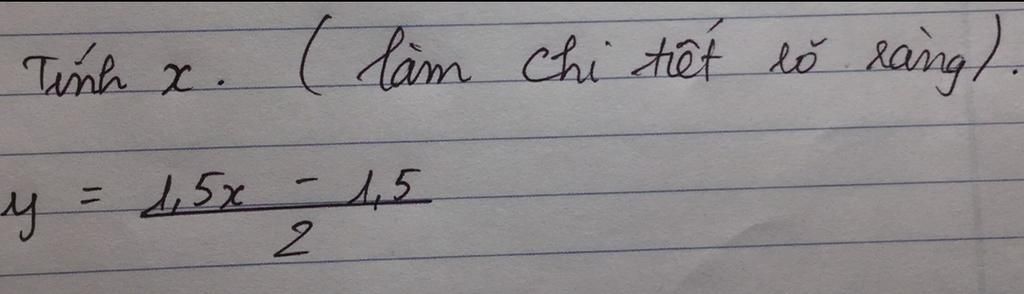 Tính x. ( làm chi tiết rõ ràng).
y = \frac{1,5x - 1,5}{2}